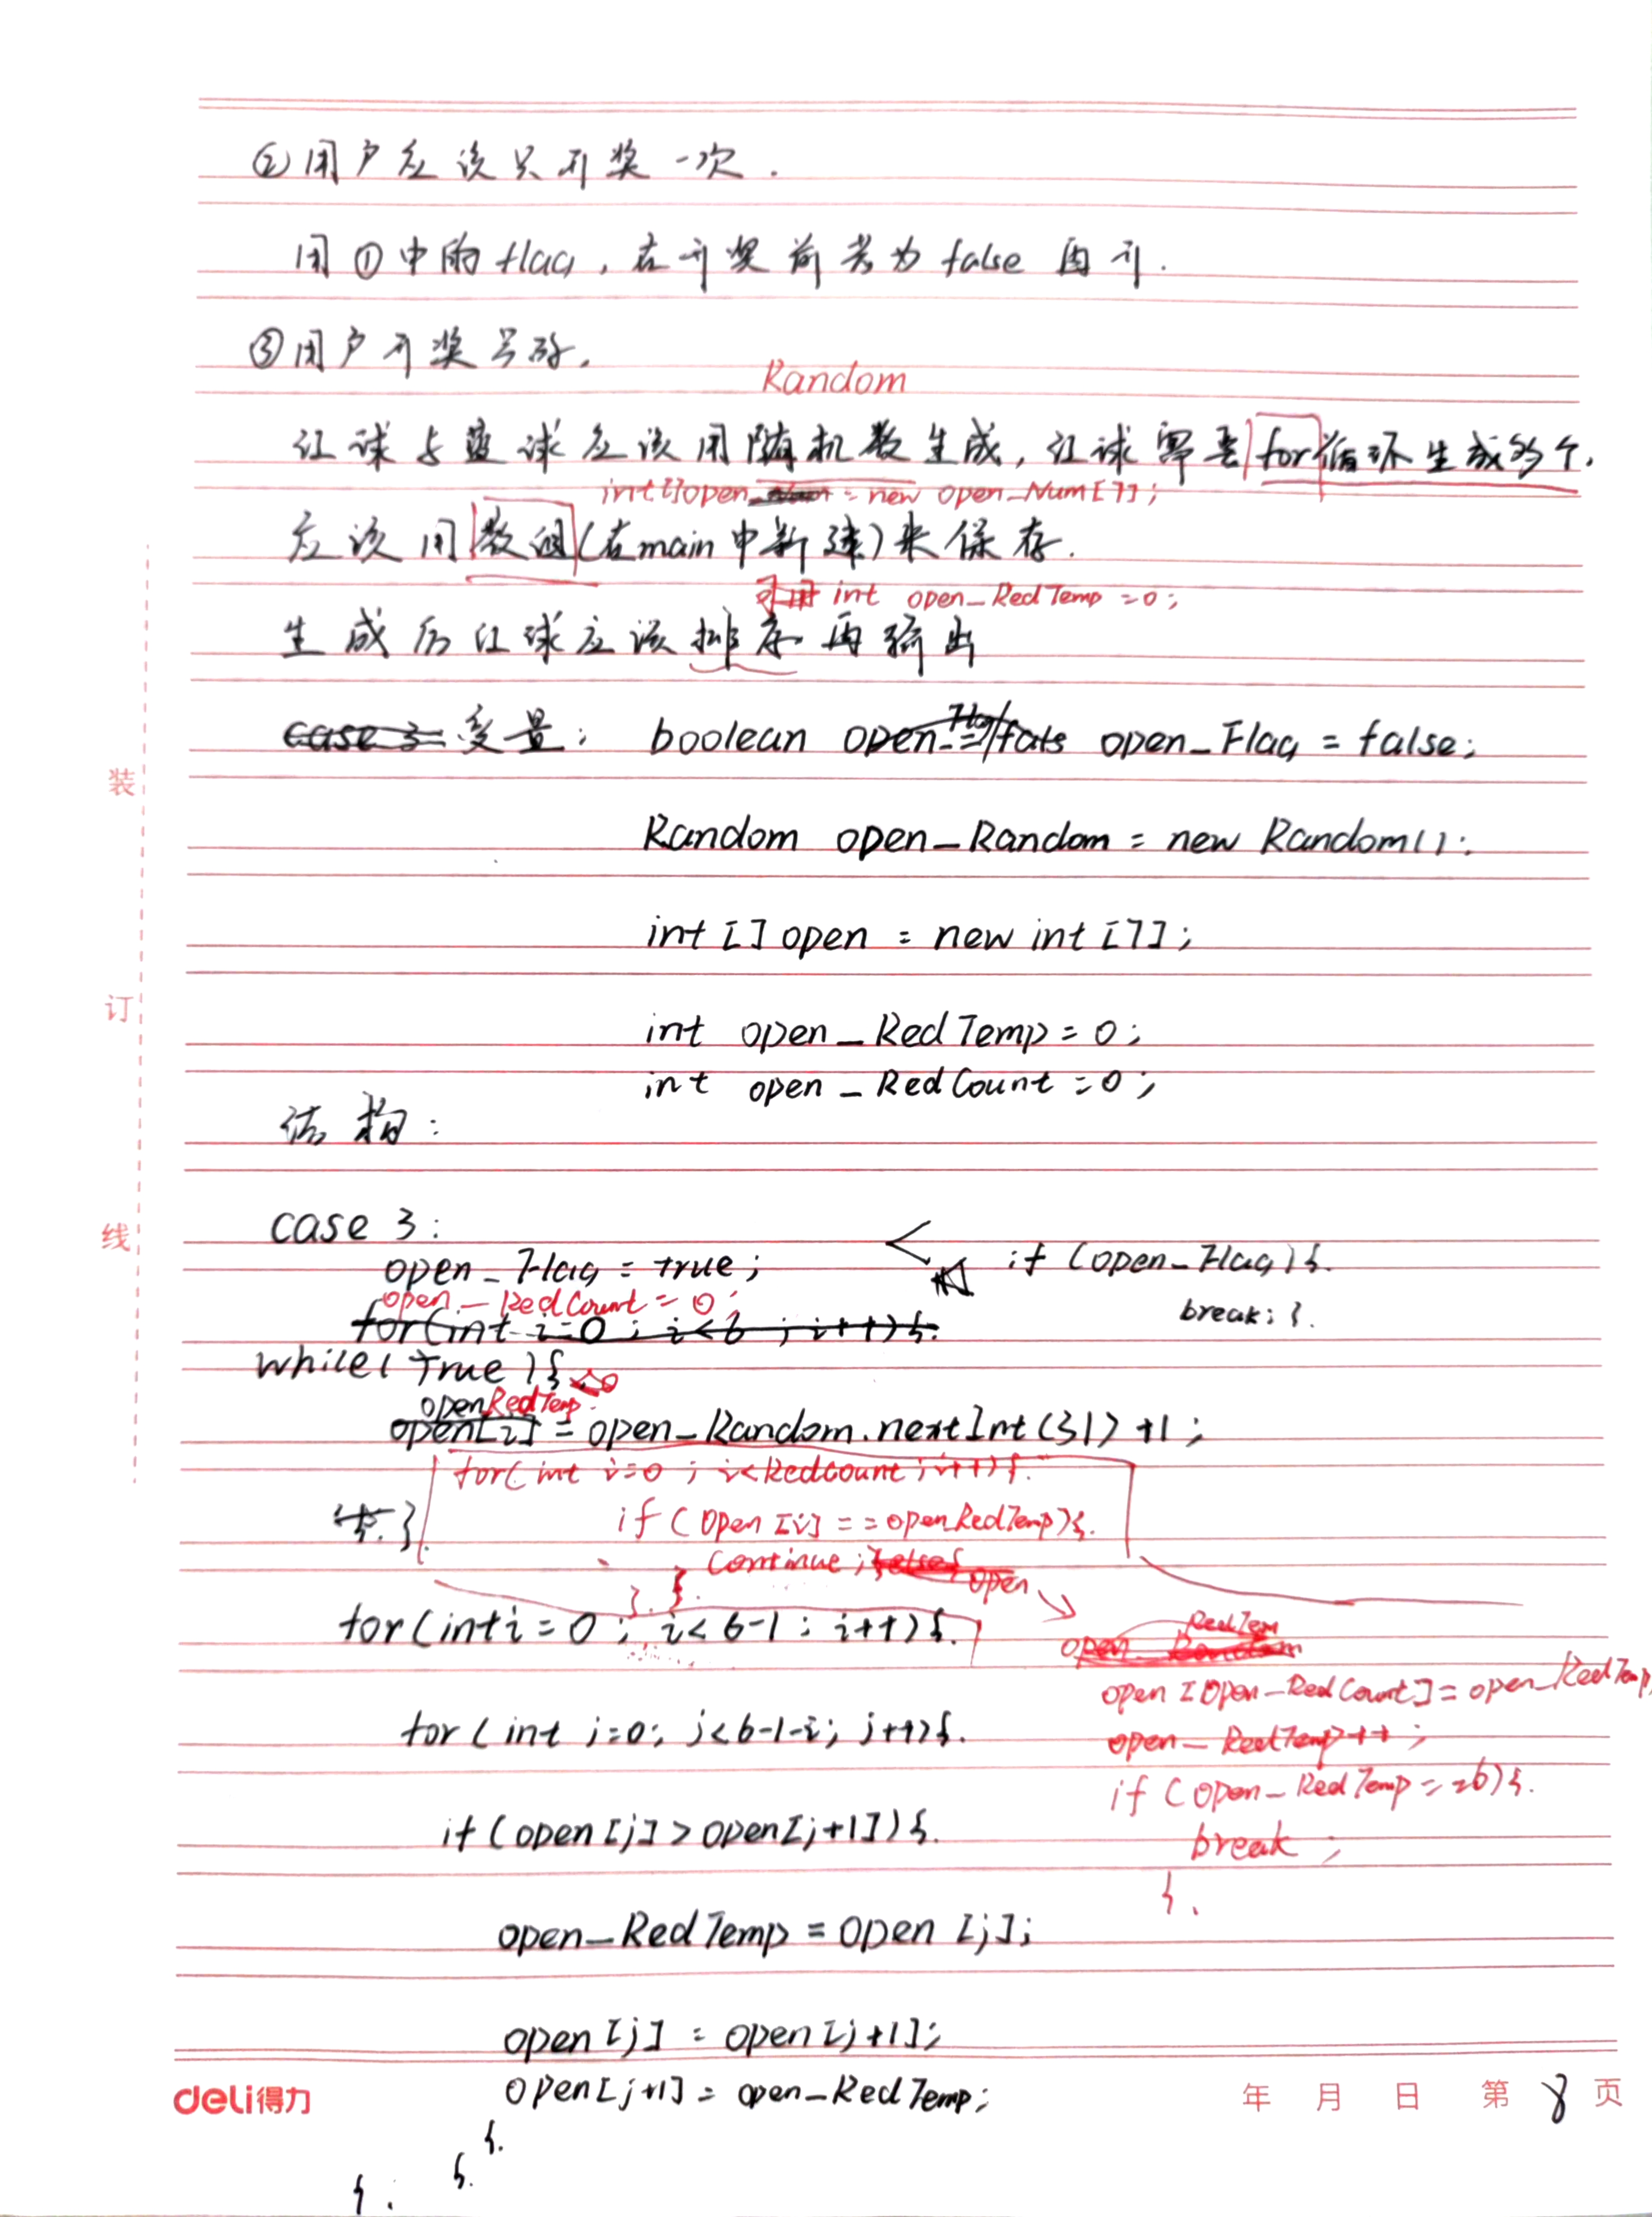 ②用户应该只开奖一次.
用①中的flag,在开奖前若为false再开.
③用户开奖号码.
Random
红球与蓝球应该用随机数生成,红球需要for循环生成多个,
int[]open = new open_Num[7];
应该用数组(在main中新建)来保存.
可用 int open_RedTemp =0;
生成后红球应该排序再输出
case 3 变量: boolean open_Flag = false;
Random open_Random = new Random();
int [] open = new int [7];
int open_RedTemp = 0;
int open_RedCount = 0;
结构:
case 3:
open_Flag = true;
if (open_Flag){
open_RedCount = 0;
break; }
for(int i=0 ; i<6 ; i++){
while( True ){
openRedTemp
open[i] = open_Random.nextInt(31) +1;
for( int i=0 ; i<Redcount ; i++){
if ( open [i] == openRedTemp){
}
continue; }else{
open
} }
for(int i = 0 ; i< 6-1 ; i++){
RedTem
open Random
open [open_RedCount] = open_RedTemp
for ( int j=0; j<6-1-i; j++){
open_RedTemp++ ;
if (open_RedTemp ==6){
if (open [j] > open[j+1]){
break ;
}
open_RedTemp = open [j];
open [j] = open [j+1];
open[j+1] = open_RedTemp;
}
}
}
装
订
线
deli得力
年 月 日 第 8 页